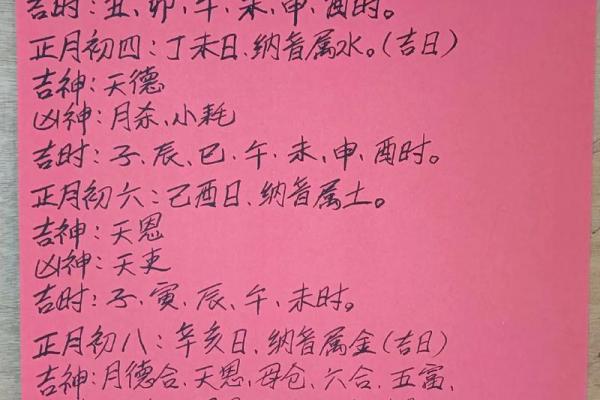 吉时：丑、卯、午、未、申、酉时。
正月初四：丁未日、纳音属水。（吉日）
吉神：天德
凶神：月杀、小耗
吉时：子、辰、巳、午、未、申、酉时。
正月初六：己酉日、纳音属土。
吉神：天恩
凶神：天吏
吉时：子、寅、辰、午、未时。
正月初八：辛亥日、纳音属金（吉日）
吉神：月德合、天恩、母仓、六合、五富、